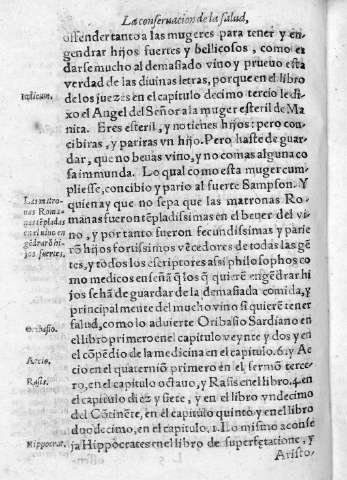 La conseruacion de la salud,
offender tanto a las mugeres para tener y en-
gendrar hijos fuertes y bellicosos, como es
darse mucho al demasiado vino y prueuo esta
verdad de las diuinas letras, porque en el libro
Iudicum.
de los juezes en el capitulo decimo tercio le di-
xo el Angel del Señor a la muger esteril de Ma
nita. Eres esteril, y no tienes hijos: pero con
cibiras, y pariras vn hijo. Pero haste de guar-
dar, que no beuas vino, y no comas alguna co
sa immunda. Lo qual como esta muger cum-
pliesse, concibio y pario al fuerte Sampson. Y
Las matro-
nas Roma-
nas tẽpladas
en el vino en
gẽdrarõ hi-
jos fuertes.
quien ay que no sepa que las matronas Ro-
manas fueron tẽpladissimas en el beuer del vi-
no, y por tanto fueron fecundissimas y parie
rõ hijos fortissimos vẽcedores de todas las gẽ
tes, y todos los escriptores assi philosophos co
mo medicos enseñã q̃ los q̃ quierẽ engẽdrar hi
jos se hã de guardar de la demasiada comida, y
principalmente del mucho vino si quierẽ tener
Oribasio.
salud, como lo aduierte Oribasio Sardiano en
el libro primero en el capitulo veynte y dos y en
el cõpẽdio de la medicina en el capitulo .6. y Ae
Aecio.
cio en el quaterniõ primero en el sermõ terce-
Rasis.
ro, en el capitulo octauo, y Rasis en el libro .4. en
el capitulo diez y siete, y en el libro vndecimo
del Cõtinẽte, en el capitulo quinto y en el libro
duodecimo, en el capitulo .1. Lo mismo aconse
Hippocrat.
ja Hippocrates en el libro de superfetatione, y
Aristo-